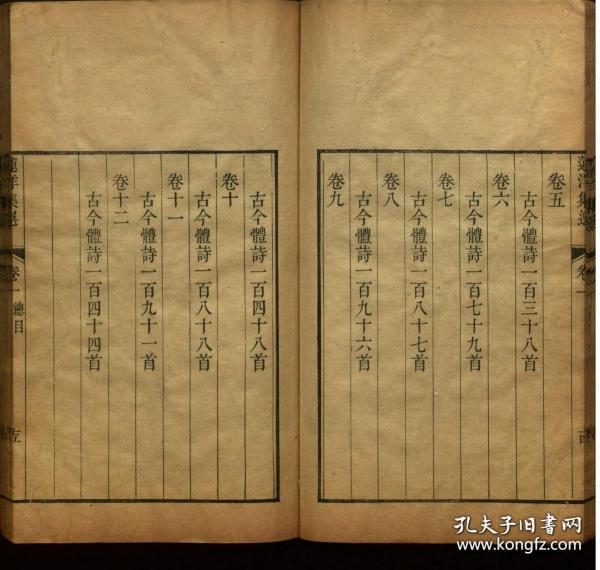 卷五
古今體詩一百三十八首
卷六
古今體詩一百七十九首
卷七
古今體詩一百八十七首
卷八
古今體詩一百九十六首
卷九
古今體詩一百四十八首
卷十
古今體詩一百八十八首
卷十一
古今體詩一百九十一首
卷十二
古今體詩一百四十四首
蓮洋集選
卷一
總目
孔夫子旧书网
www.kongfz.com